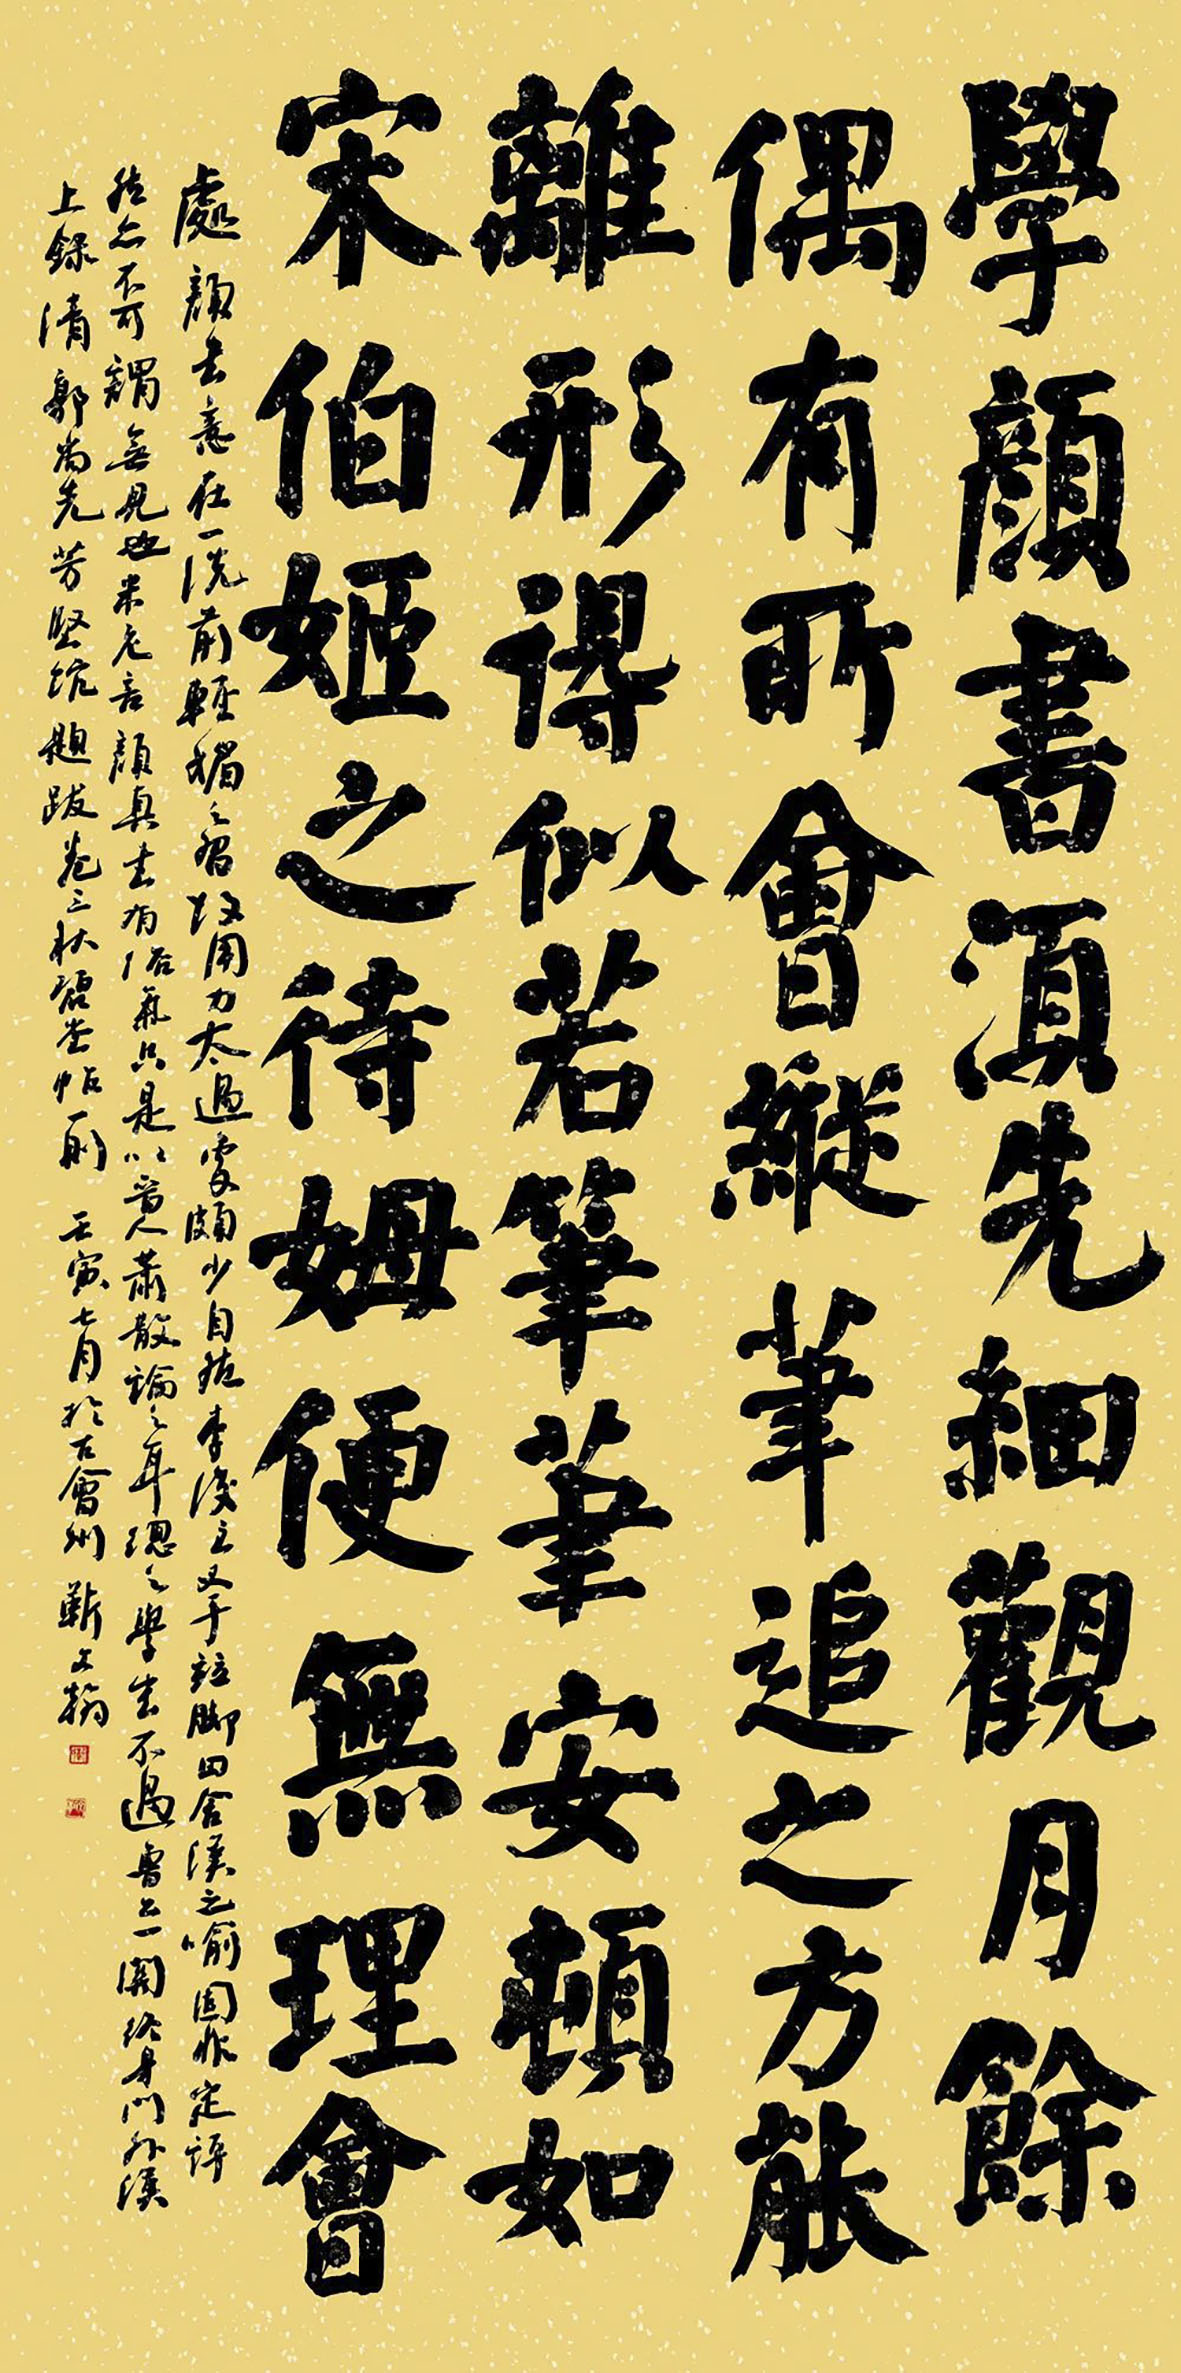 學顏書須先細觀月餘
偶有所會縱筆追之方能
離形得似若筆筆安頓如
宋伯姬之待姆便無理會
處顏書意在一洗前輕媚之習故用力太過處頗少自然李後主叉手竝腳田舍漢之喻固非定評
然亦不可謂無見也米老言顏真書有俗氣只是以晉人蕭散論之耳總之學書不過魯公一關終身門外漢
上錄清郭尚先芳堅館題跋卷三 壬寅七月於古會州靳文翰